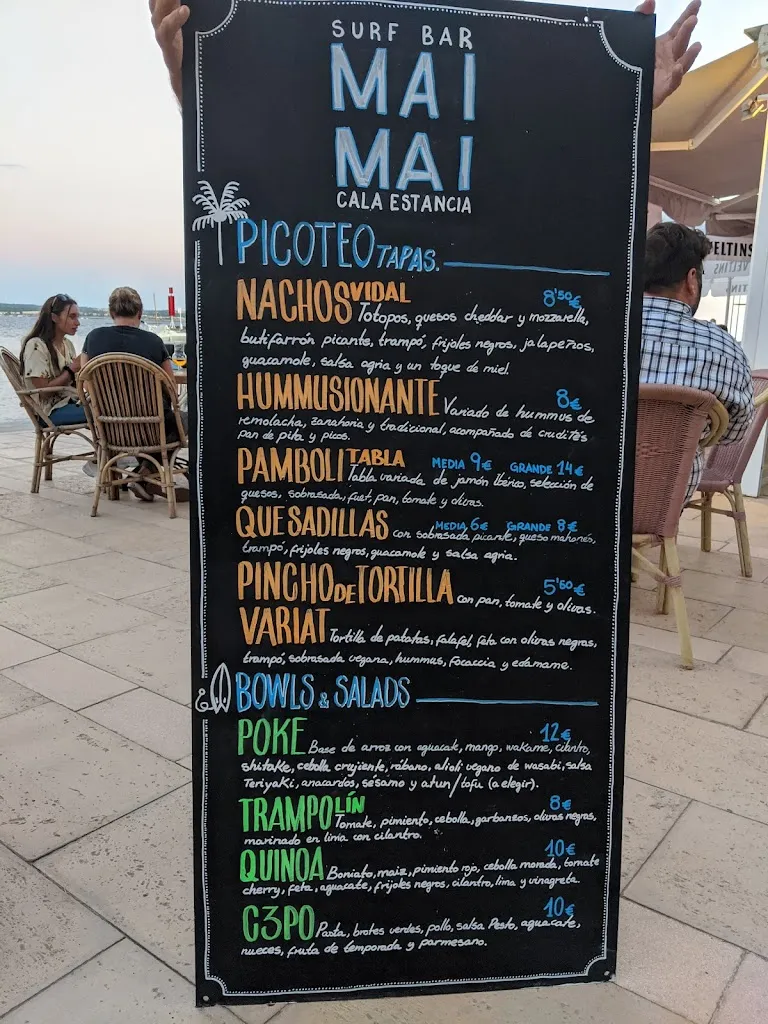 SURF BAR
MAI
MAI
CALA ESTANCIA
PICOTEO TAPAS.
NACHOS VIDAL 8'50€
Totopos, quesos cheddar y mozzarella,
butifarrón picante, trampó, frijoles negros, jalapeños,
guacamole, salsa agria y un toque de miel.
HUMMUSIONANTE 8€
Variado de hummus de
remolacha, zanahoria y tradicional, acompañado de crudités
pan de pita y picos.
PAMBOLI TABLA MEDIA 9€ GRANDE 14€
Tabla variada de jamón Ibérico, selección de
quesos, sobrasada, fuet, pan, tomate y olivas.
QUESADILLAS MEDIA 6€ GRANDE 8€
con sobrasada picante, queso mahonés,
trampó, frijoles negros, guacamole y salsa agria.
PINCHO DE TORTILLA 5'50€
con pan, tomate y olivas.
VARIAT Tortilla de patatas, falafel, feta con olivas negras,
trampó, sobrasada vegana, hummus, focaccia y edamame.
BOWLS & SALADS
POKE 12€
Base de arroz con aguacate, mango, wakame, cilantro,
shitake, cebolla crujiente, rábano, alioli vegano de wasabi, salsa
Teriyaki, anacardos, sésamo y atun/tofu (a elegir).
TRAMPOLÍN 8€
Tomate, pimiento, cebolla, garbanzos, olivas negras,
marinado en lima con cilantro.
QUINOA 10€
Boniato, maiz, pimiento rojo, cebolla morada, tomate
cherry, feta, aguacate, frijoles negros, cilantro, lima y vinagreta.
C3PO 10€
Pasta, brotes verdes, pollo, salsa Pesto, aguacate,
nueces, fruta de temporada y parmesano.
VELTINS